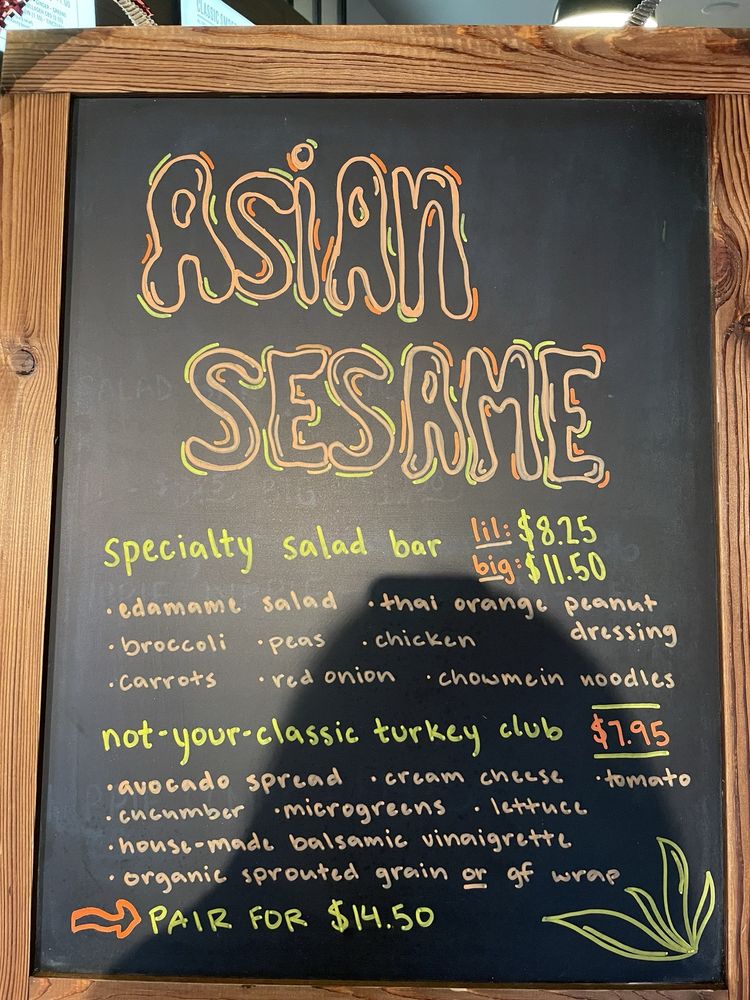 CLASSIC SMOO
ASiAN
SESAME
specialty salad bar lil: $8.25
big: $11.50
· edamame salad · thai orange peanut
dressing
· broccoli · peas · chicken
· carrots · red onion · chowmein noodles
not-your-classic turkey club $7.95
· avocado spread · cream cheese · tomato
· cucumber · microgreens · lettuce
· house-made balsamic vinaigrette
· organic sprouted grain or gf wrap
PAIR FOR $14.50